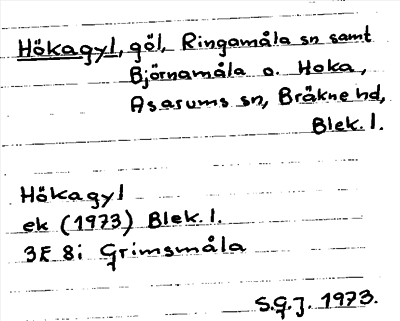 Hökagyl, göl, Ringamåla sn samt
Björnamåla o. Hoka,
Asarums sn, Bräkne hd,
Blek. l.
Hökagyl
ek (1973) Blek. l.
3E 8i Grimsmåla
S.G.J. 1973.